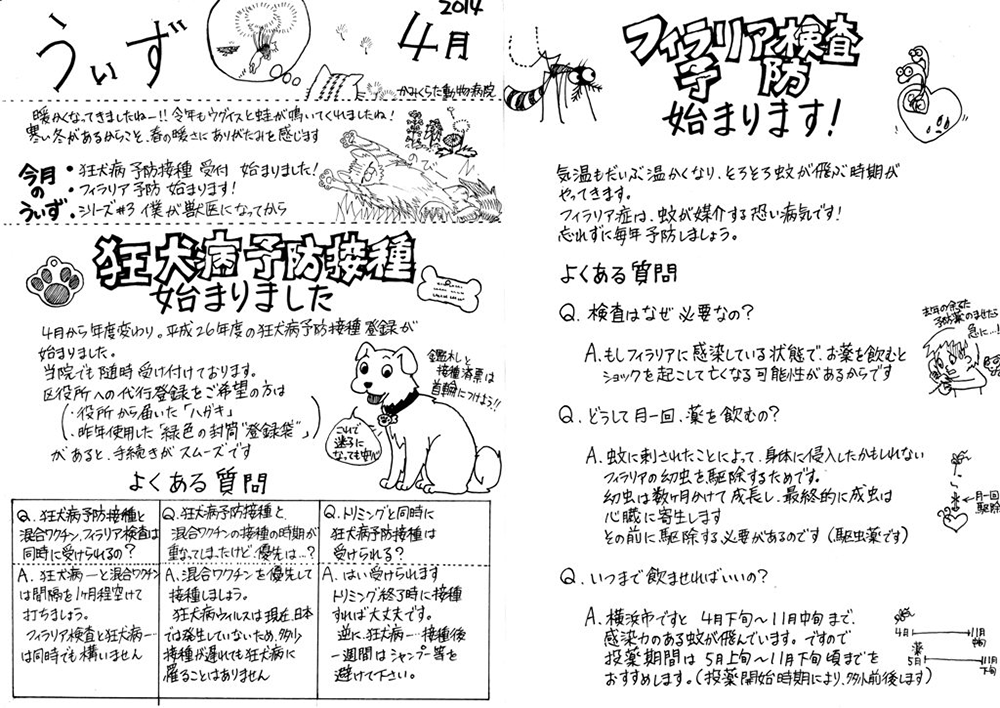 2014
うぃず
4月
かみくらた動物病院
暖かくなってきましたねー!!今年もウグイスと蛙が鳴いてくれましたね!
寒い冬があるからこそ、春の暖さにありがたみを感じます
今月のうぃず
・狂犬病予防接種 受付 始まりました!
・フィラリア予防 始まります!
・シリーズ#3 僕が獣医になってから
ので
狂犬病予防接種
始まりました
4月から年度変わり。平成26年度の狂犬病予防接種登録が
始まりました。
当院でも随時受け付けております。
区役所への代行登録をご希望の方は
(・役所から届いた「ハガキ」
・昨年使用した「緑色の封筒“登録袋”」)
があると、手続きがスムーズです
鑑札と
接種済票は
首輪につけよう!!
これで
迷子に
なっても安心
よくある質問
Q.狂犬病予防接種と
混合ワクチン、フィラリア検査は
同時に受けられるの?
A.狂犬病―と混合ワクチン
は間隔を1ヶ月程空けて
打ちましょう。
フィラリア検査と狂犬病―
は同時でも構いません
Q.狂犬病予防接種と
混合ワクチンの接種の時期が
重なってしまったけど優先は…?
A.混合ワクチンを優先して
接種しましょう。
狂犬病ウィルスは現在、日本
では発生していないため、多少
接種が遅れても狂犬病に
罹ることはありません
Q.トリミングと同時に
狂犬病予防接種は
受けられる?
A.はい受けられます
トリミング終了時に接種
すれば大丈夫です。
逆に、狂犬病―…接種後
一週間はシャンプー等を
避けて下さい。
フィラリア検査
予防
始まります!
気温もだいぶ温かくなり、とうとう蚊が飛ぶ時期が
やってきます。
フィラリア症は、蚊が媒介する恐い病気です!
忘れずに毎年予防しましょう。
よくある質問
Q.検査はなぜ必要なの?
A.もしフィラリアに感染している状態で、お薬を飲むと
ショックを起こして亡くなる可能性があるからです
去年の余った
予防薬のませたら
急に…!
Q.どうして月一回、薬を飲むの?
A.蚊に刺されたことによって、身体に侵入したかもしれない
フィラリアの幼虫を駆除するためです。
幼虫は数ヶ月かけて成長し、最終的に成虫は
心臓に寄生します
その前に駆除する必要があるのです(駆虫薬です)
月一回
駆除
Q.いつまで飲ませればいいの?
A.横浜市ですと 4月下旬〜11月中旬まで、
感染力のある蚊が飛んでいます。ですので
投薬期間は 5月上旬〜11月下旬頃までを
おすすめします。(投薬開始時期により、多少前後します)
4月
11月
中旬
薬
5月
11月
下旬